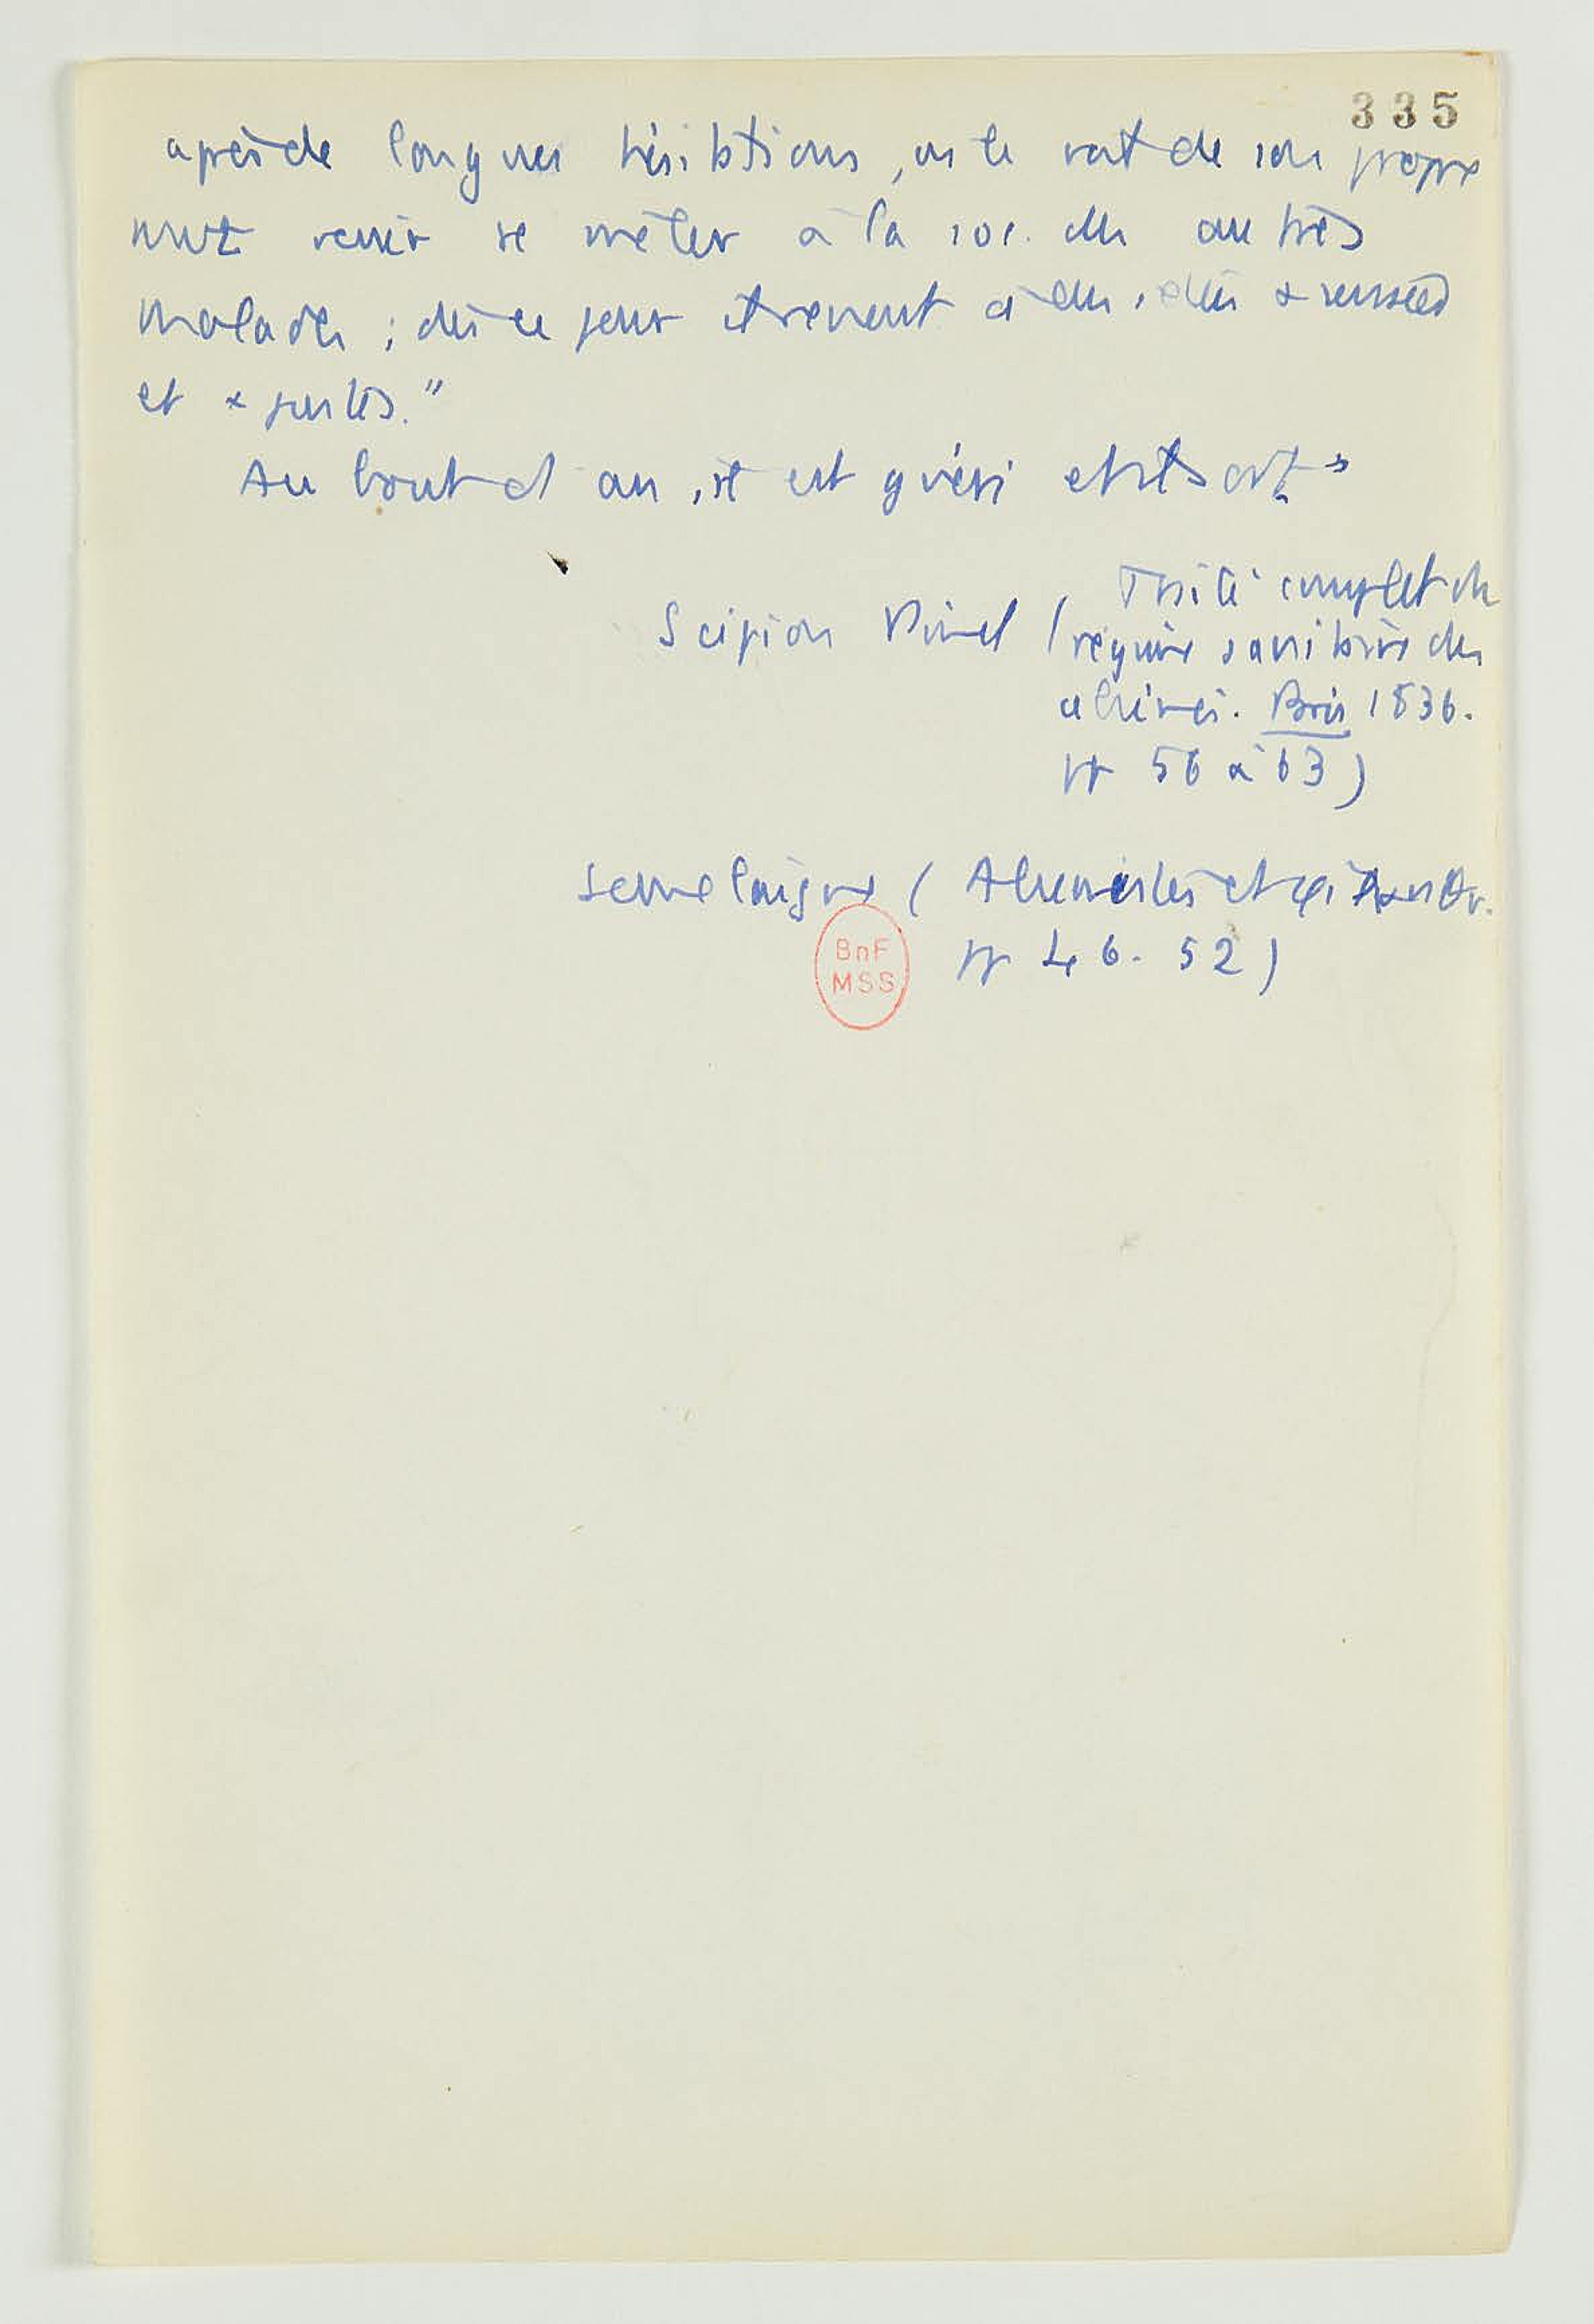 335
après de longues hésitations, on le voit de son propre
mvt venir se mêler à la soc. des autres
malades ; dès ce jour il revient à des idées + sensées
et + justes."
Au bout d'1 an, il est guéri et il sort
Scipion Pinel (Traité complet du
régime sanitaire des
aliénés. Paris 1836.
pp 56 à 63)
Semelaigne (Aliénistes et
pp 46-52)
BnF
MSS